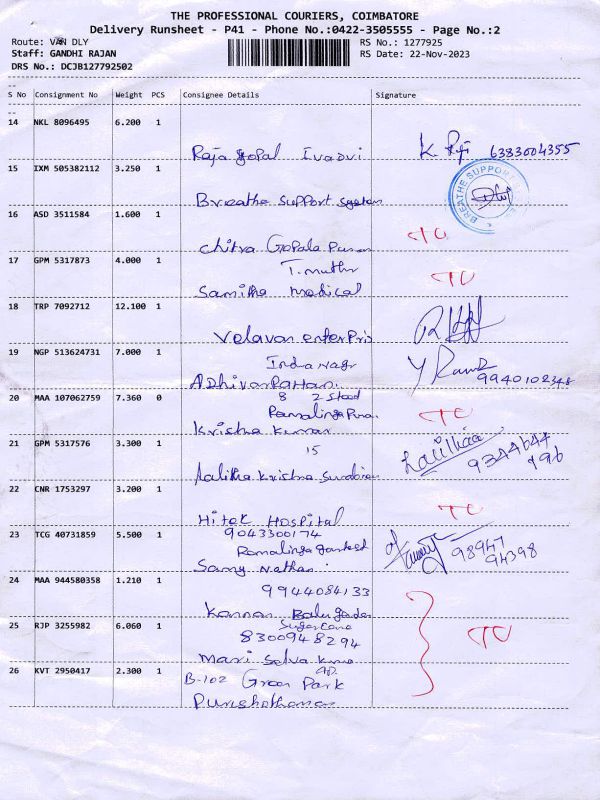 THE PROFESSIONAL COURIERS, COIMBATORE
Delivery Runsheet - P41 - Phone No.:0422-3505555 - Page No.:2
Route: VAN DLY
Staff: GANDHI RAJAN
DRS No.: DCJB127792502
RS No.: 1277925
RS Date: 22-Nov-2023
S No Consignment No Weight PCS Consignee Details Signature
14 NKL 8096495 6.200 1
Raja gopal K 6383004355
15 IXM 505382112 3.250 1
Breathe Support System BREATHE SUPPORT
16 ASD 3511584 1.600 1
Chitra Gopala TO
17 GPM 5317873 4.000 1
T. muthu
Samitha medical TO
18 TRP 7092712 12.100 1
Velavan enterPris
19 NGP 513624731 7.000 1
Indra Nagr
9940102348
20 MAA 107062759 7.360 0
8 2 Steed
Ramalinga Puram
Krishna Kumar TO
21 GPM 5317576 3.300 1
15
Lalitha Krishna Lalithaa 9344644
496
22 CNR 1753297 3.200 1
Hitek Hospital TO
23 TCG 40731859 5.500 1
9043300174
Ramalinga
Samy Nathan 98947
94398
24 MAA 944580358 1.210 1
9944084133
Kannan
25 RJP 3255982 6.060 1
Sugar Cane
8300948294
Mari Selva TO
26 KVT 2950417 2.300 1
AP.
B-102 Green Park
Purushothaman